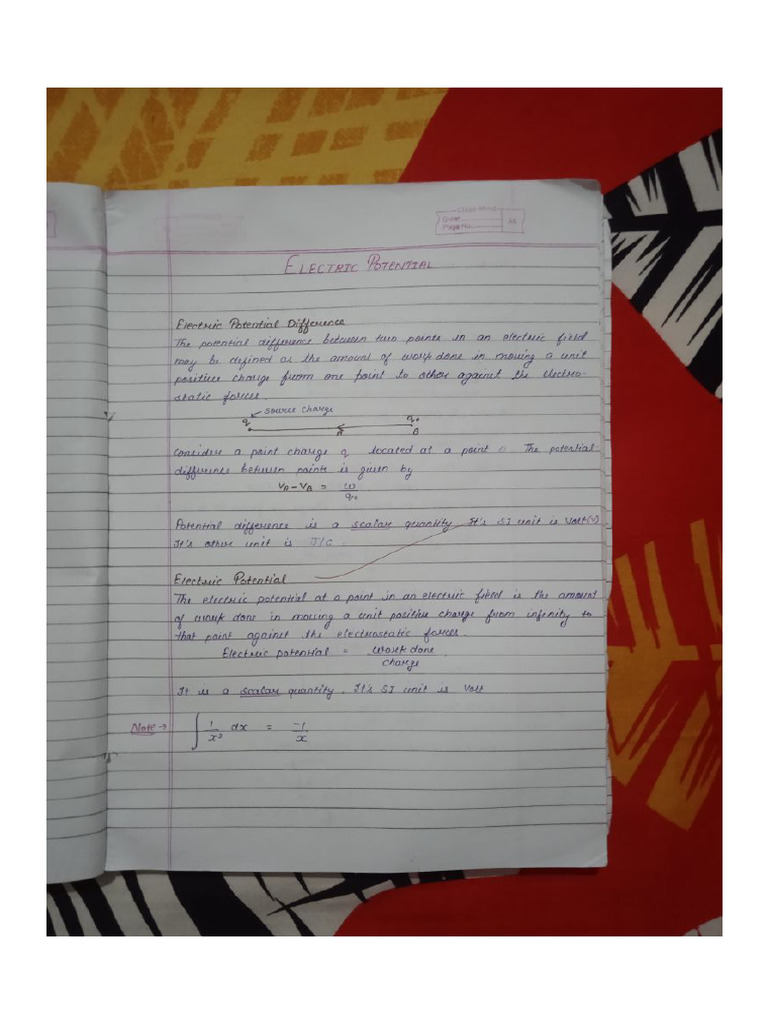 Class Mind
Date
Page No.
ELECTRIC POTENTIAL
Electric Potential Difference
The potential difference between two points in an electric field
may be defined as the amount of work done in moving a unit
positive charge from one point to other against the electro-
static forces.
source charge
q q₀
A B
Consider a point charge q located at a point O The potential
difference between points is given by
VA - VB = W
q₀
Potential difference is a scalar quantity. It's SI unit is Volt(V)
It's other unit is J/C.
Electric Potential
The electric potential at a point in an electric field is the amount
of work done in moving a unit positive charge from infinity to
that point against the electrostatic forces.
Electric potential = Work done
charge
It is a scalar quantity. It's SI unit is Volt
Note → ∫ 1/x² dx = -1/x